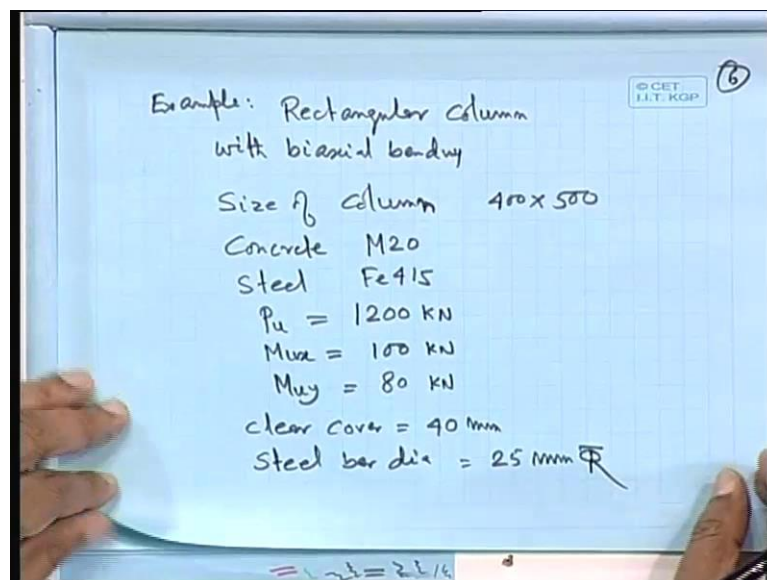 6
© CET
I.I.T. KGP
Example: Rectangular column
with biaxial bending
Size of column 400 x 500
Concrete M20
Steel Fe 415
Pu = 1200 KN
Mux = 100 KN
Muy = 80 KN
Clear cover = 40 mm
Steel bar dia = 25 mm